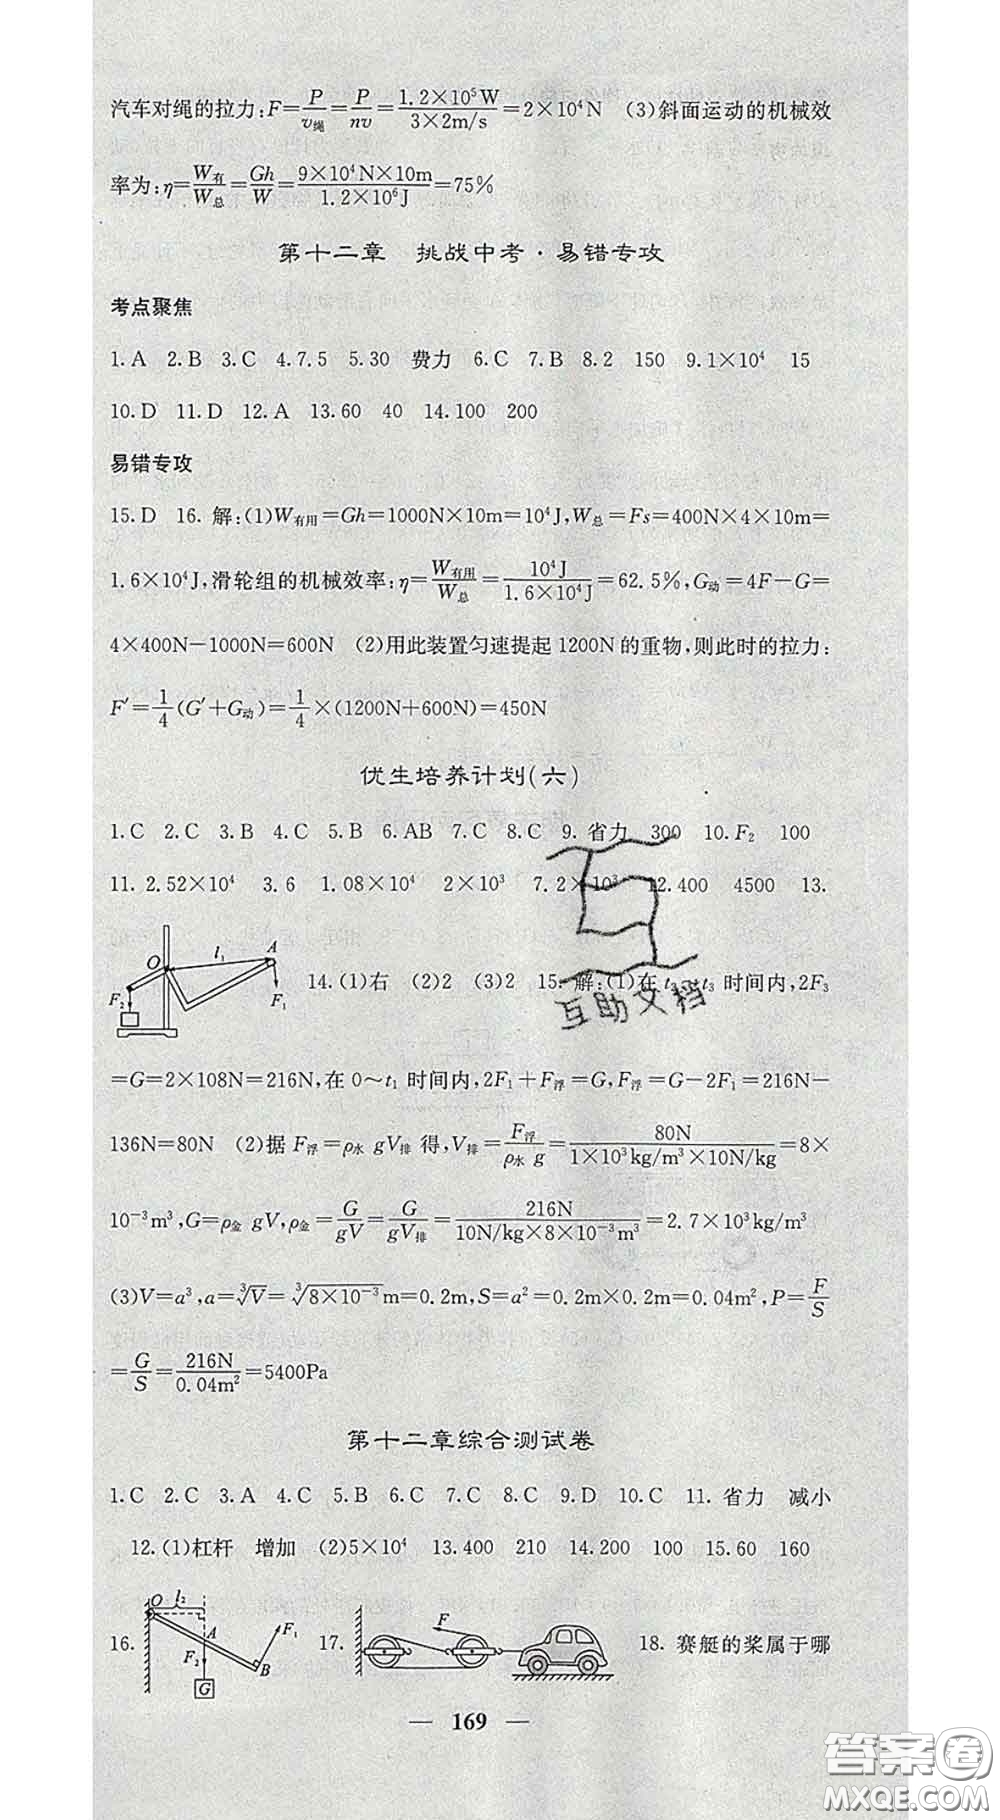 汽车对绳的拉力:F=P/v绳=P/nv=1.2×10⁵W/3×2m/s=2×10⁴N (3)斜面运动的机械效
率为:η=W有/W总=Gh/W=9×10⁴N×10m/1.2×10⁶J=75%
第十二章 挑战中考·易错专攻
考点聚焦
1.A 2.B 3.C 4.7.5 5.30 费力 6.C 7.B 8.2 150 9.1×10⁴ 15
10.D 11.D 12.A 13.60 40 14.100 200
易错专攻
15.D 16.解:(1)W有用=Gh=1000N×10m=10⁴J,W总=Fs=400N×4×10m=
1.6×10⁴J,滑轮组的机械效率:η=W有用/W总=10⁴J/1.6×10⁴J=62.5%,G动=4F-G=
4×400N-1000N=600N (2)用此装置匀速提起1200N的重物,则此时的拉力:
F′=1/4(G′+G动)=1/4×(1200N+600N)=450N
优生培养计划(六)
1.C 2.C 3.B 4.C 5.B 6.AB 7.C 8.C 9.省力 300 10.F₂ 100
11.2.52×10⁴ 3.6 1.08×10⁴ 2×10³ 7.2×10³ 12.400 4500 13.
O l₁ A F₂ F₁ 14.(1)右 (2)2 (3)2 15.解:(1)在t₃~t₃时间内,2F₃
互助文档
=G=2×108N=216N,在0~t₁时间内,2F₁+F浮=G,F浮=G-2F₁=216N-
136N=80N (2)据F浮=ρ水gV排得,V排=F浮/ρ水g=80N/1×10³kg/m³×10N/kg=8×
10⁻³m³,G=ρ金gV,ρ金=G/gV=G/gV排=216N/10N/kg×8×10⁻³m³=2.7×10³kg/m³
(3)V=a³,a=∛V=∛8×10⁻³m=0.2m,S=a²=0.2m×0.2m=0.04m²,P=F/S
=G/S=216N/0.04m²=5400Pa
第十二章综合测试卷
1.C 2.C 3.A 4.C 5.B 6.C 7.C 8.C 9.D 10.C 11.省力 减小
12.(1)杠杆 增加 (2)5×10⁴ 13.400 210 14.200 100 15.60 160
16. O l₂ A F₁ F₂ B G 17. F 18.赛艇的桨属于哪
— 169 —
答案圈
MXQE.COM